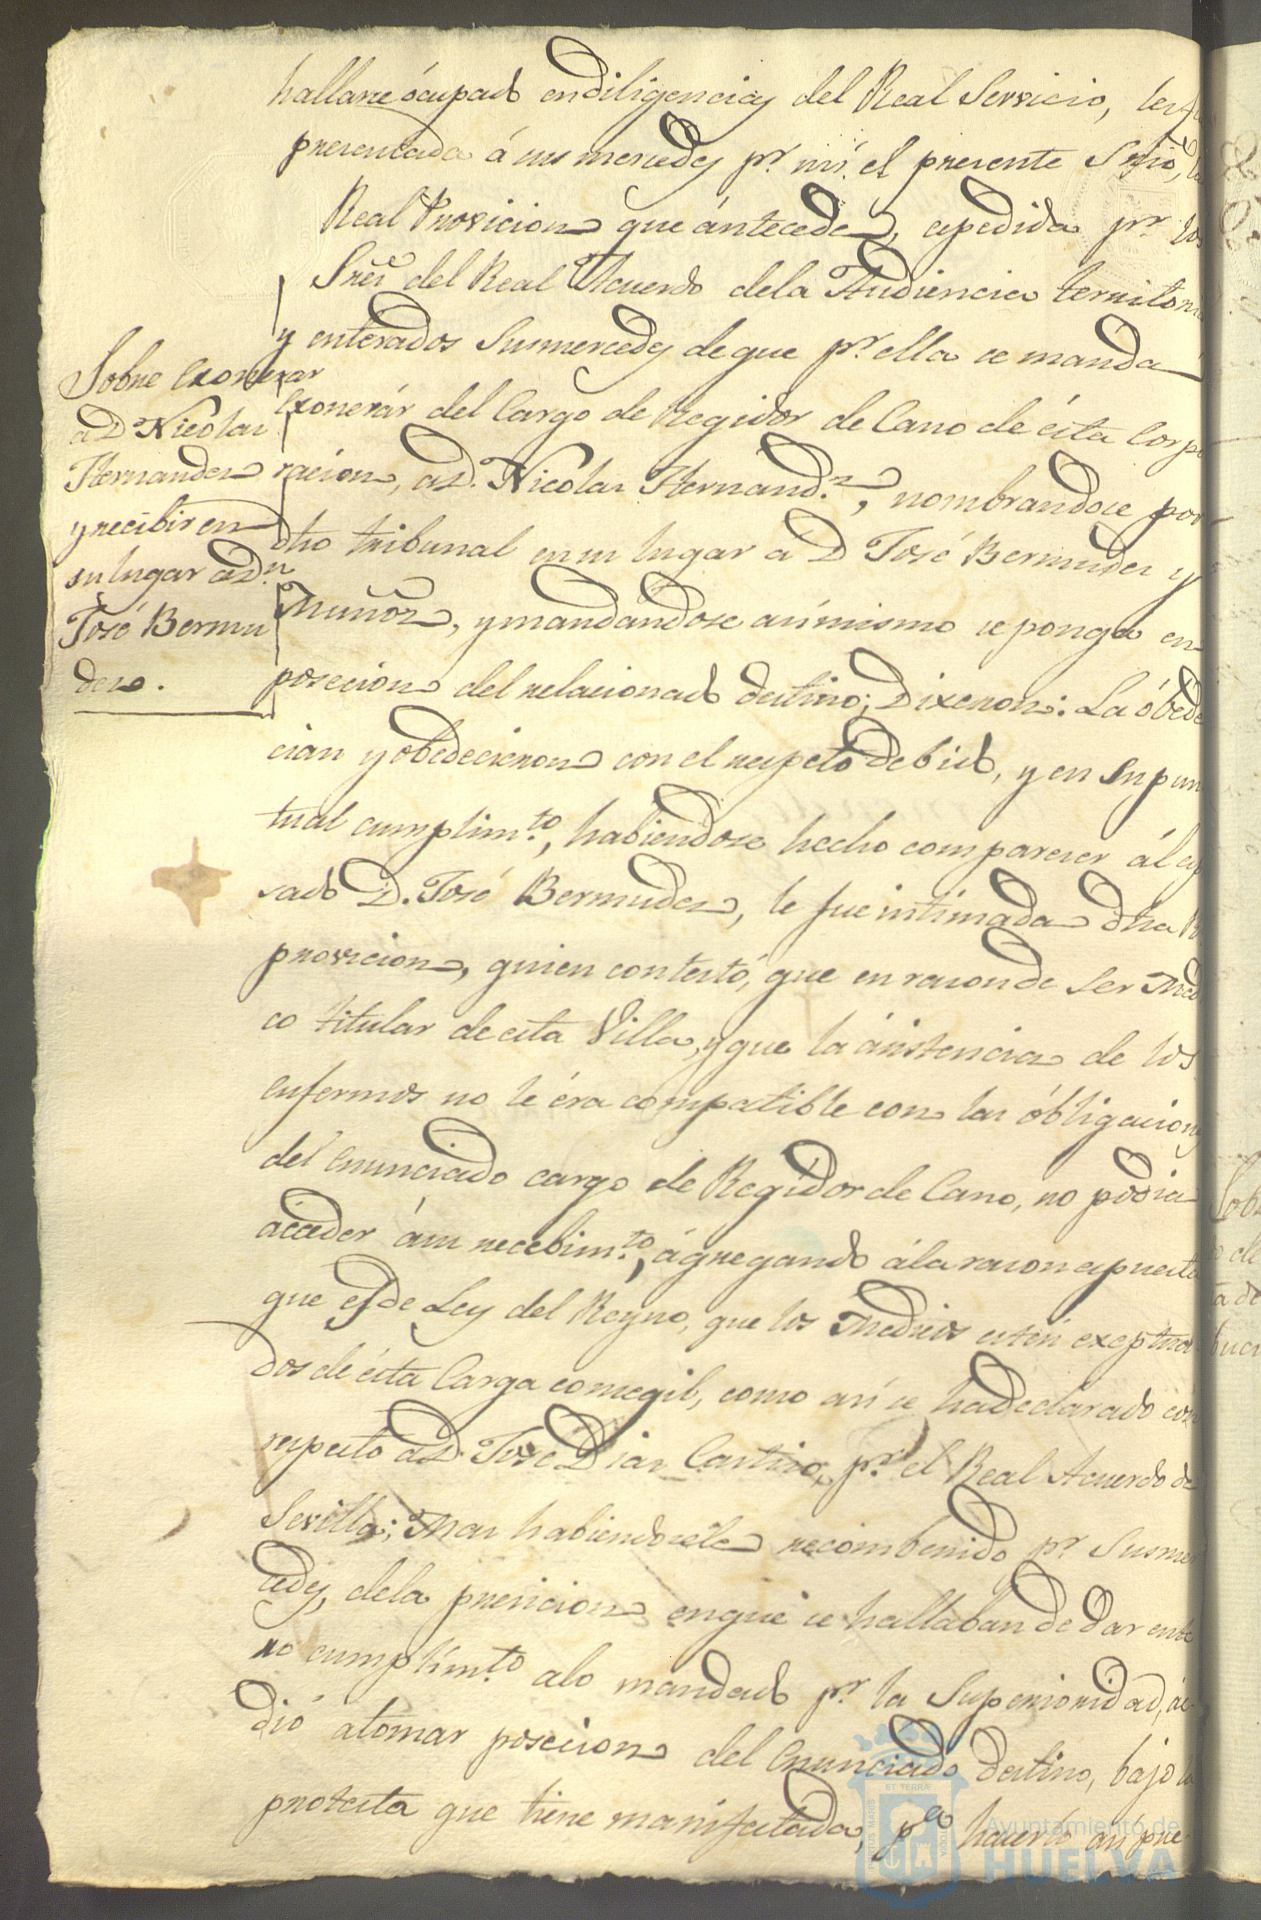 hallarse ócupado en diligencias del Real Servicio, les fu
presentada á sus mercedes pr. mí el presente Srio, la
Real Provicion que ántecede, expedida pr. los
Sres. del Real Acuerdo de la Audiencia territori
y enterados Susmercedes de que pr. ella se manda
Sobre exonerar
a D Nicolas
Hernandez
y recibir en
su lugar a Dn.
José Bermu
dez.
Exonerár del Cargo de Regidor de Cano de ésta Corpo
racion, a D. Nicolas Hernandz., nombrandose por
dho tribunal en su lugar a D José Bermudez y
Muñoz, y mandándose asímismo se ponga en
posecion del relacionado destino; Dixeron: La óbede
cian y obedecieron con el respeto debido, y en su pun
tual cumplimto., habiendose hecho comparecer ál ex
sado D. José Bermudez, le fue intimada dha R
provicion, quien contestó, que en razon de ser Medi
co titular de esta Villa, y que la ásistencia de los
enfermos no le éra compatible con las óbligacion
del enunciado cargo de Regidor de Cano, no podia
acceder á su recebimto., ágregando á la razon expuesta
que es de Ley del Reyno, que los Medicos estén exeptua
dos de ésta Carga consegil, como así se ha declarado con
respecto a D. José Diaz Castizo, pr. el Real Acuerdo de
Sevilla; Mas habiendosele recombenido pr. Susmer
cedes, de la presicion en que se hallaban de dar ente
ro cumplimto. a lo mandado pr. la Superioridad, ác
dió a tomar posecion del enunciado destino, bajo la
protesta que tiene manifestada, pa. hacerlo así pre
ET TERRÆ
Ayuntamiento de
HUELVA
Sob